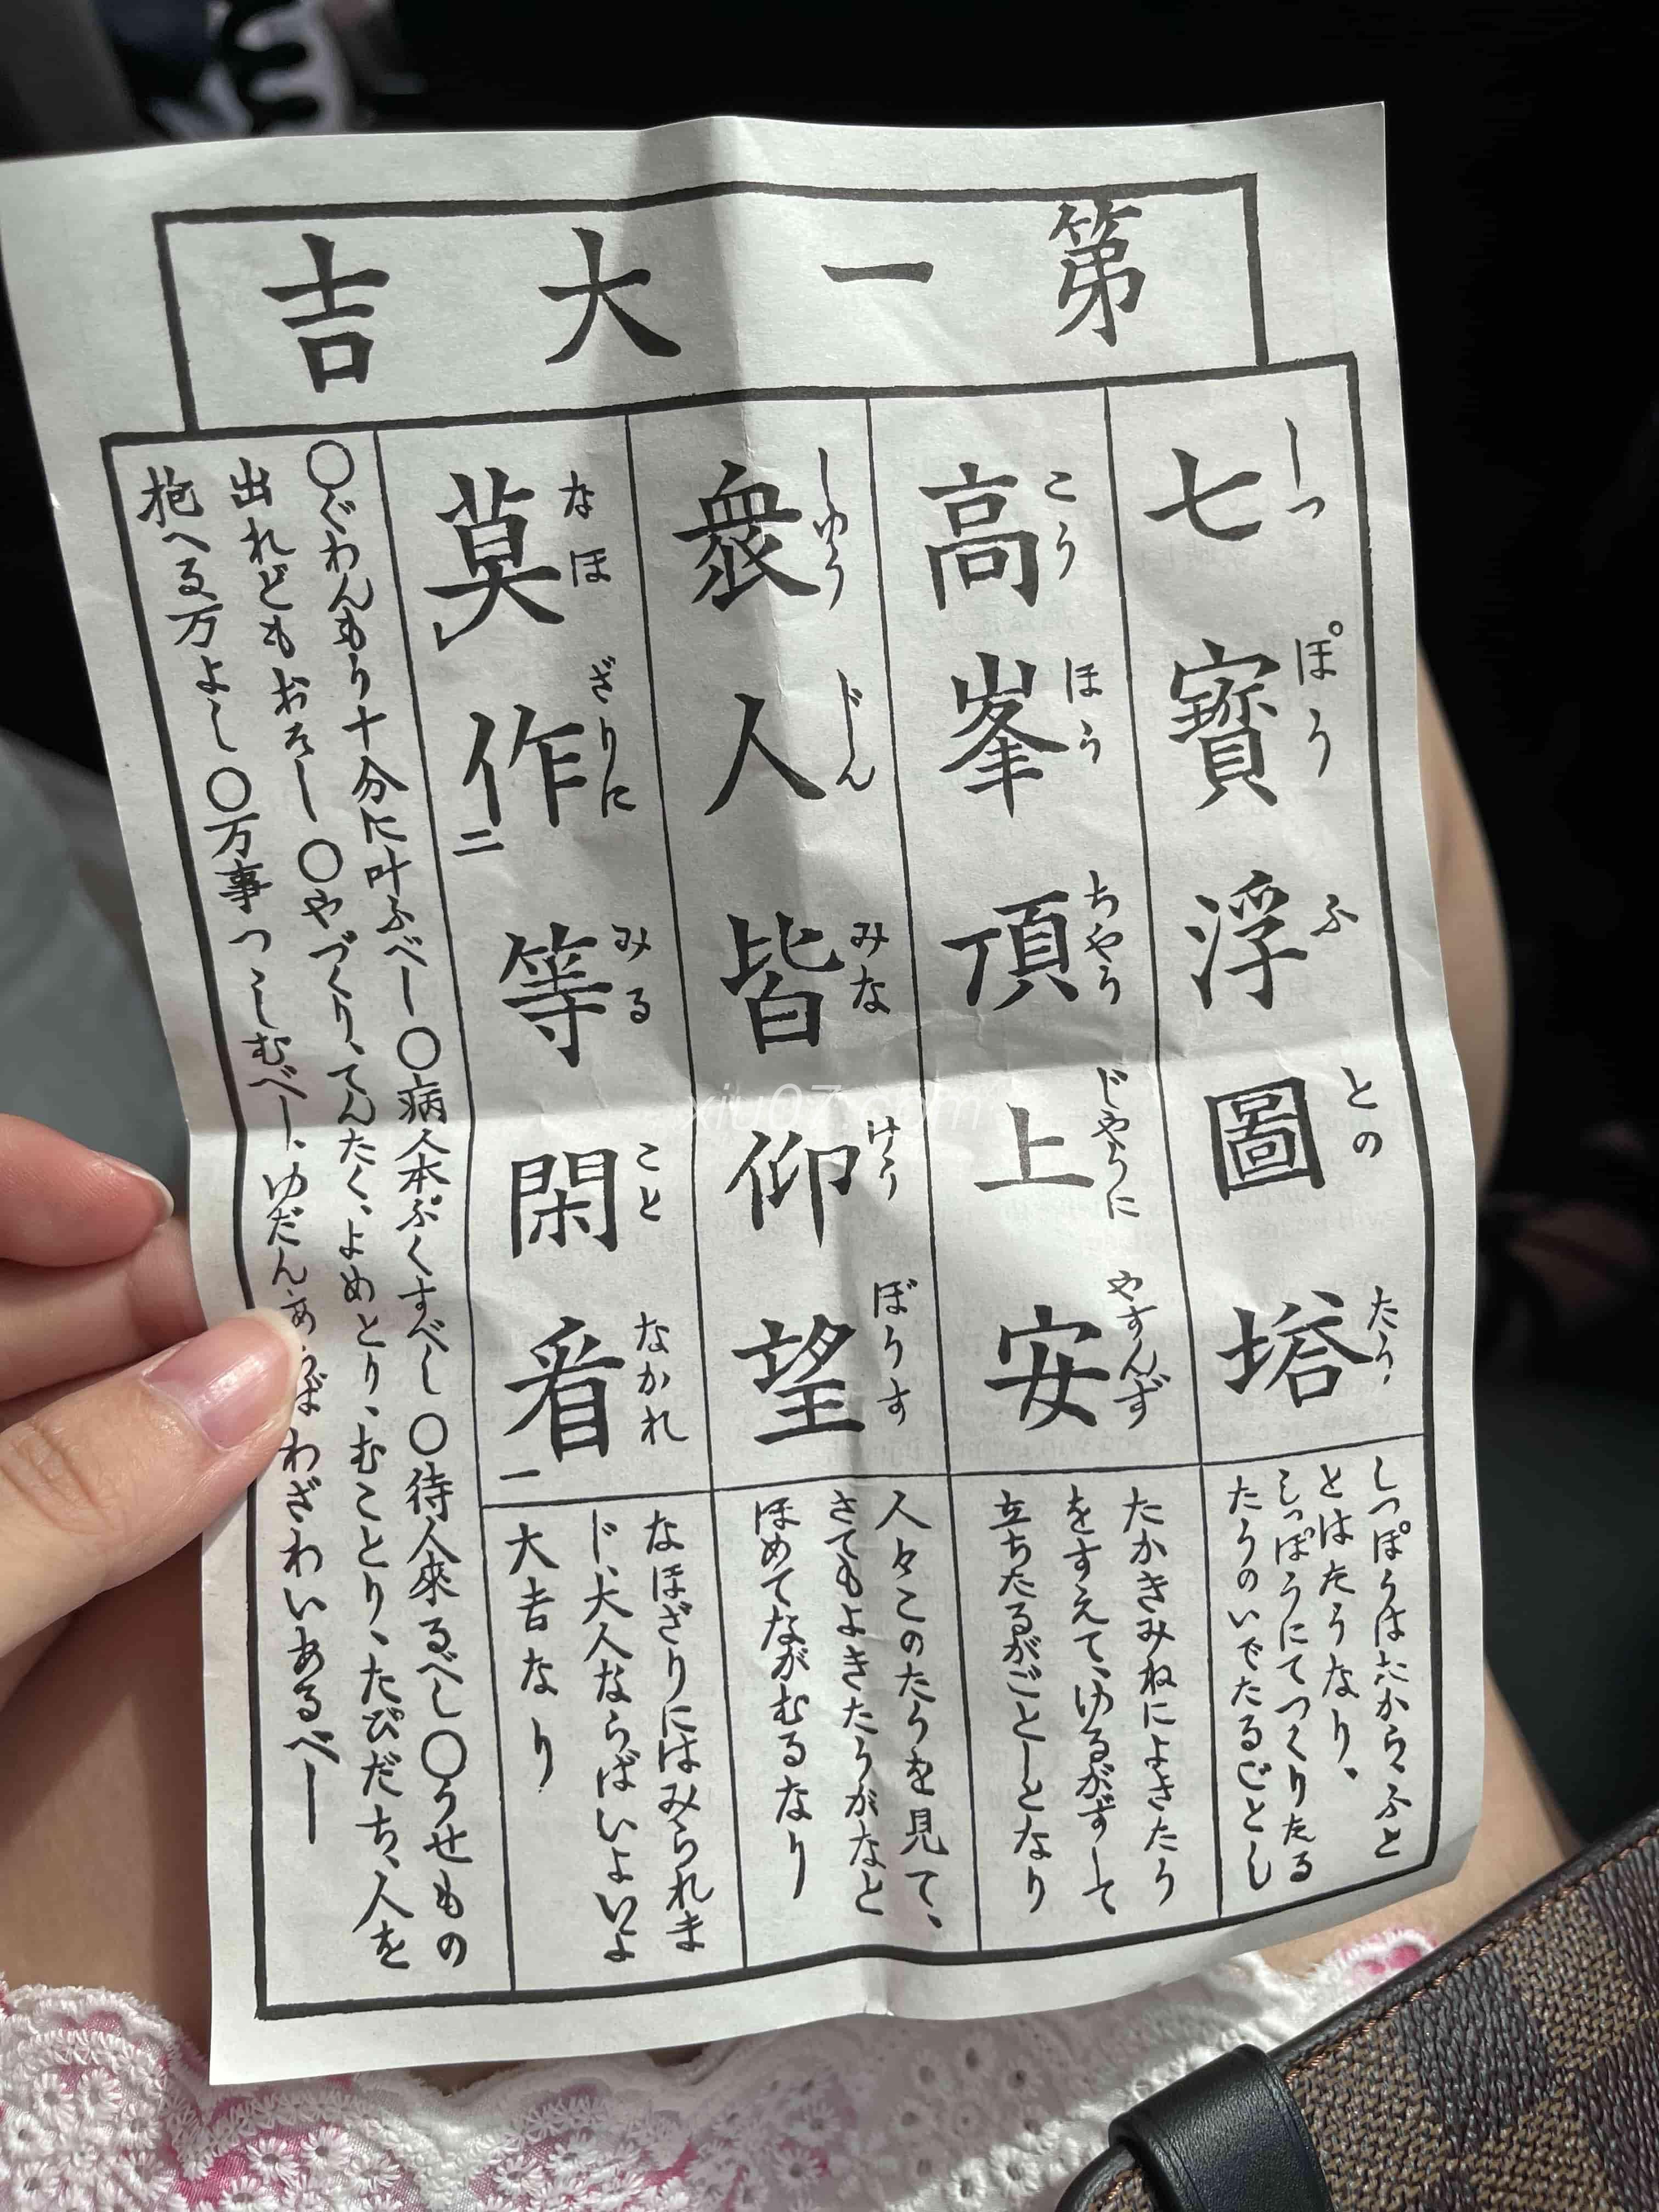 第一大吉
七寶浮圖塔
しつぽうふとのたう
しつぽうはたからふと
とはたうなり。
しつぽうにてつくりたる
たうのいでたるごとし
高峯頂上安
こうほうちやうじやうにやすんず
たかきみねによきたう
をすえて、ゆるがずして
立ちたるがごとしとなり
衆人皆仰望
しゆうじんみなけうぼうす
人々このたうを見て、
さてもよきたうがなと
ほめてながむるなり
莫作二等閑看一
なほざりにみることなかれ
なほざりにはみられま
じ、大人ならばいよいよ
大吉なり
〇ぐわんもう十分に叶ふべし〇病人本ぷくすべし〇待人來るべし〇うせもの
出れどもおそし〇やづくり、てんたく、よめとり、むことり、たびだち、人を
抱へる万よし〇万事つゝしむべし、ゆだんあらばわざわいあるべし
xiu07.com